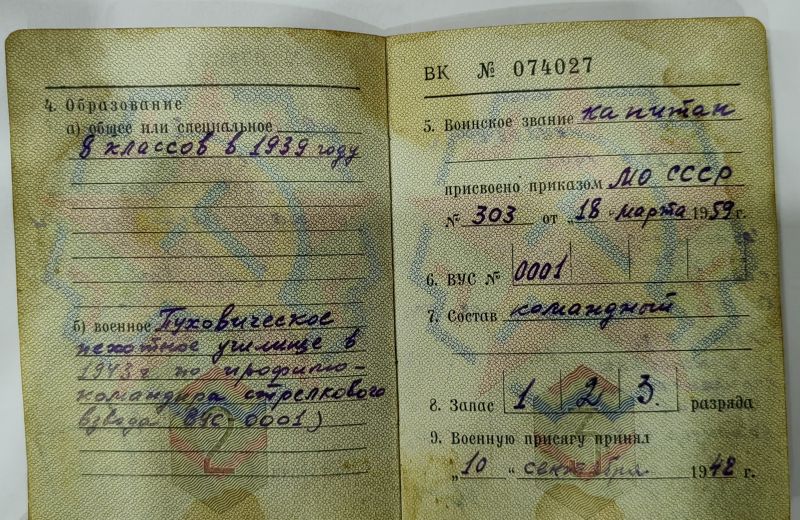 4. Образование
а) общее или специальное
8 классов в 1939 году
б) военное Пуховическое
пехотное училище в
1943 г по профилю-
командира стрелкового
взвода ВУС-0001)
ВК № 074027
5. Воинское звание капитан
присвоено приказом МО СССР
№ 303 от „18 марта 1959 г.
6. ВУС № 0001
7. Состав командный
8. Запас 1 2 3. разряда
9. Военную присягу принял
„10 “ сентября 1942 г.